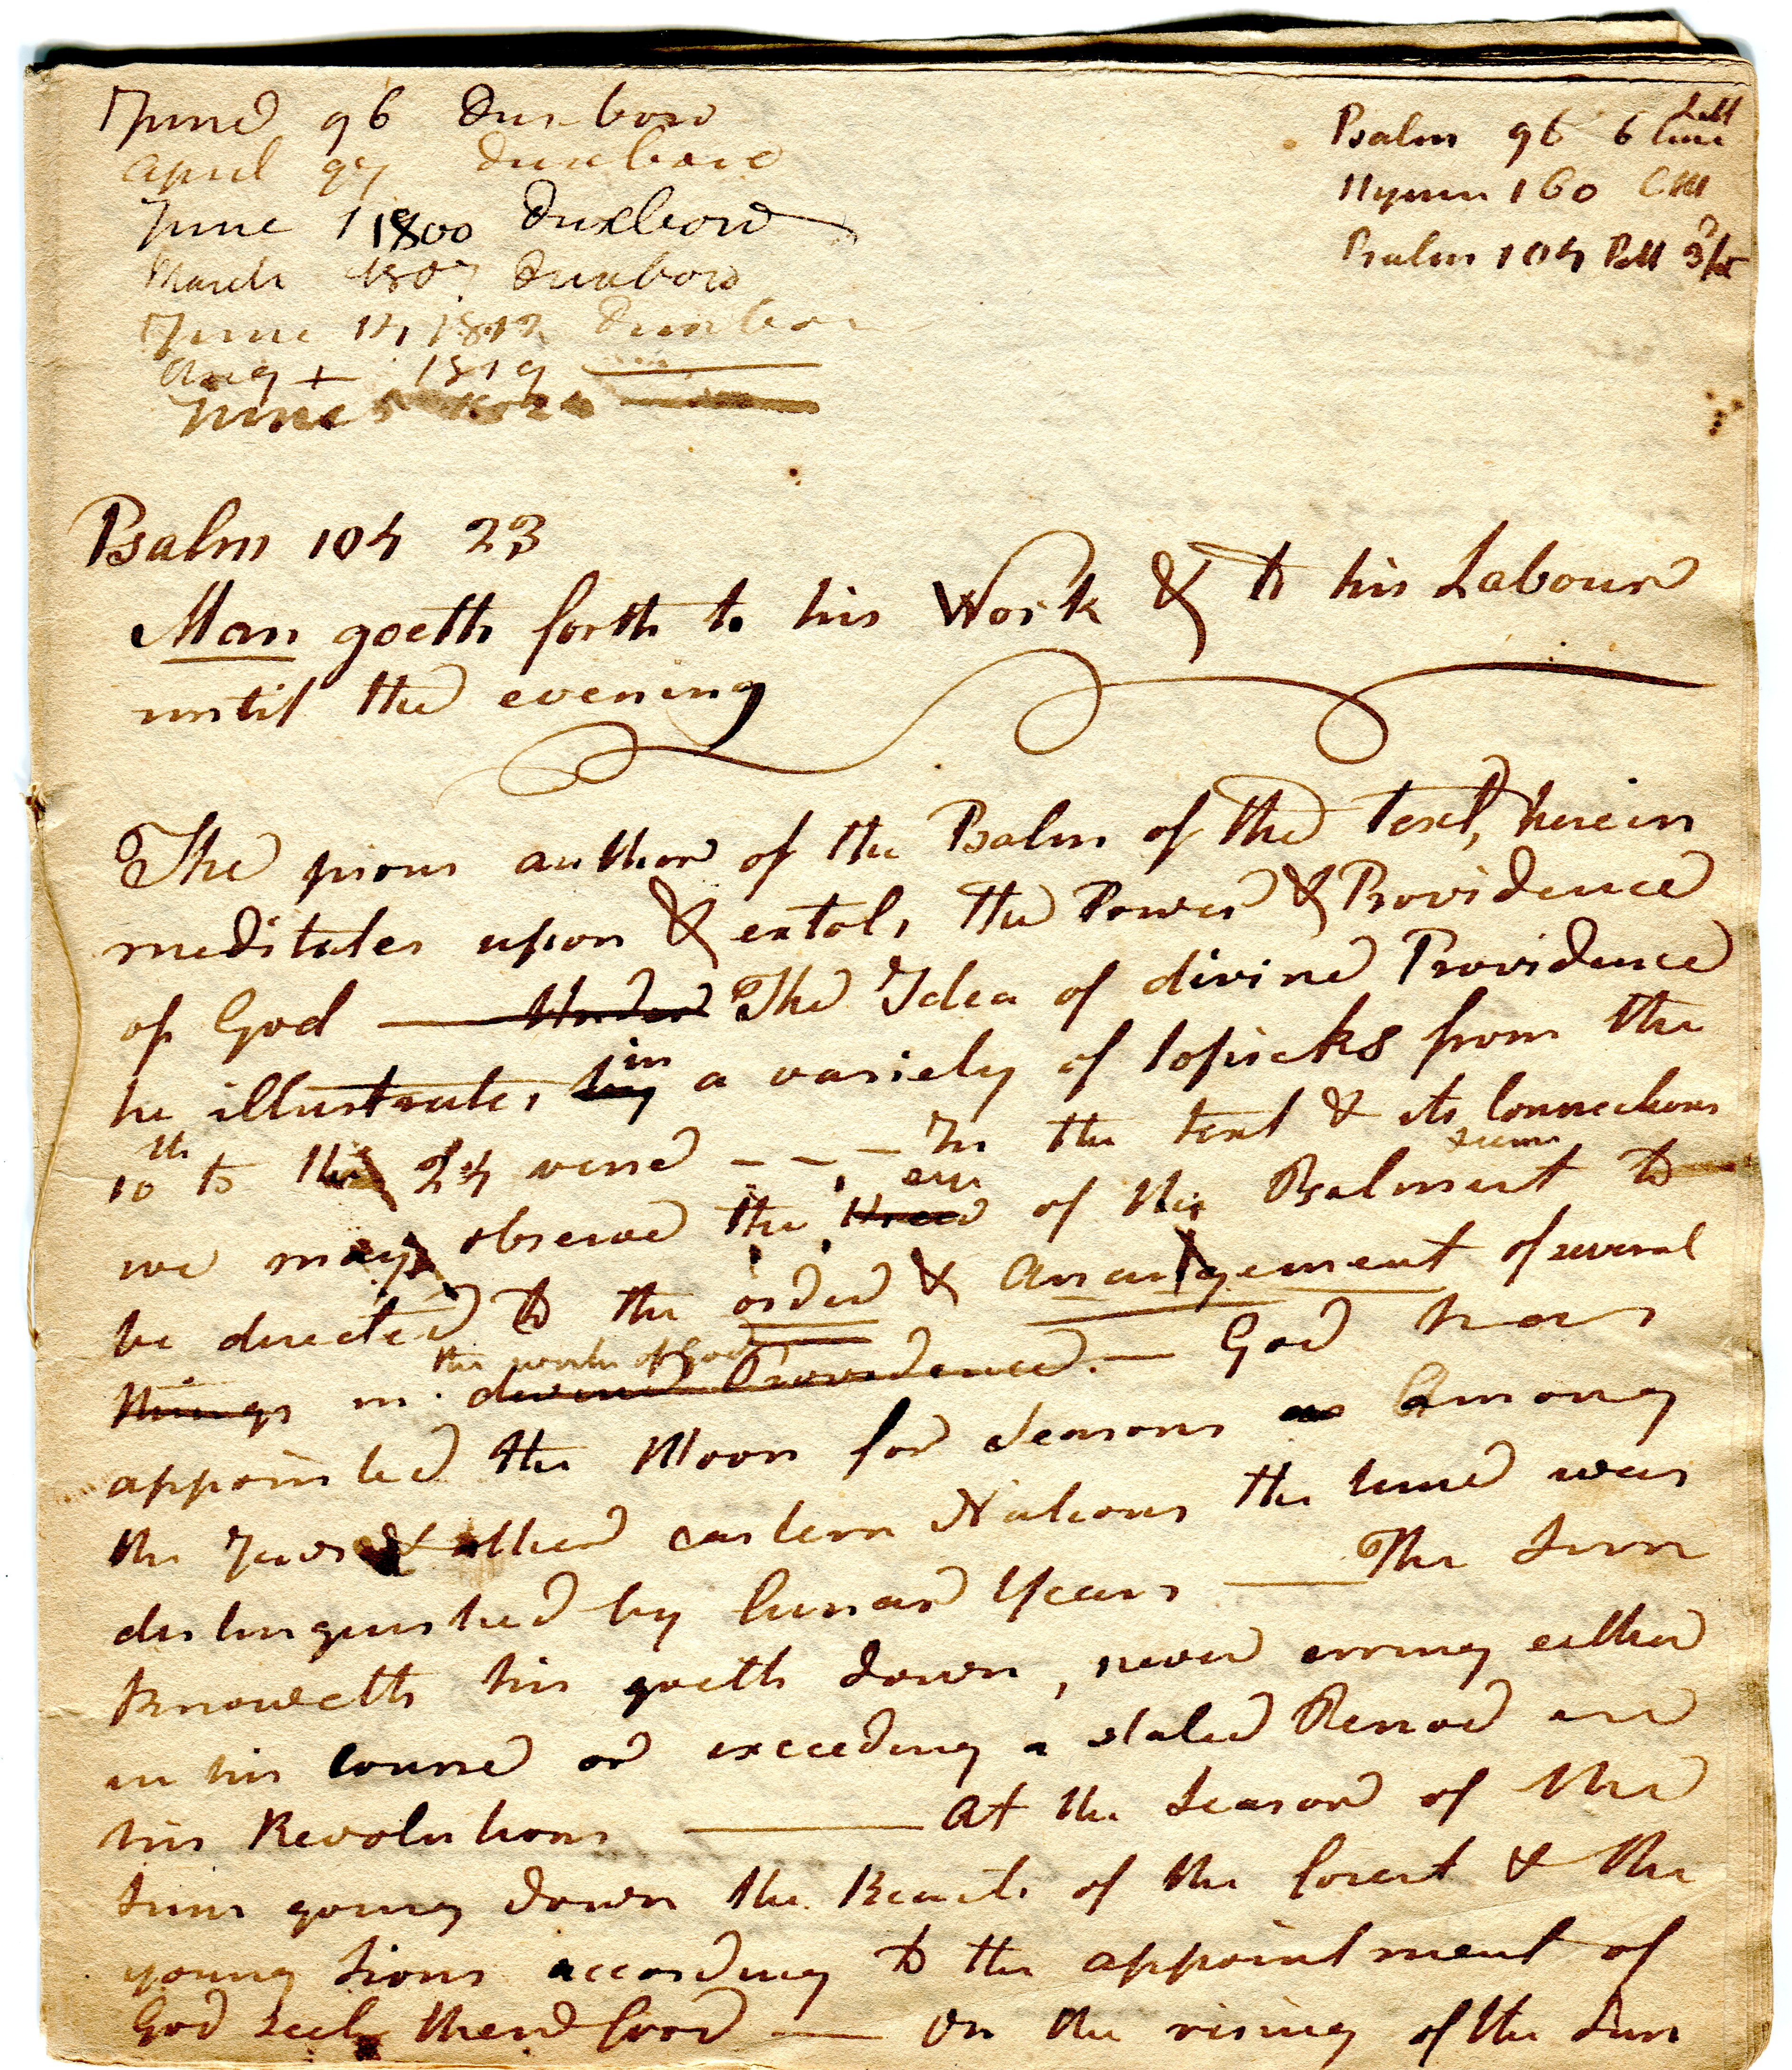 June 96 Duxboro
April 97 Duxboro
June 1 1800 Duxboro
March 1807 Duxboro
June 14, 1812 Duxboro
Aug 1819
June 5
Psalm 96 6 line
Hymn 160 CM
Psalm 104
Psalm 104 23
Man goeth forth to his Work & to his Labour
until the evening
The pious author of the Psalm of the text, herein
meditates upon & extols the Power & Providence
of God — Under The Idea of divine Providence
he illustrates by in a variety of topicks from the
10th to the 24 verse - - - In the text & its Connections
we may observe the eye of the Psalmist seems to
be directed to the order & Arrangement of several
things in divine Providence the works of God. — God has
appointed the Moon for Seasons Among
the Jews & other eastern Nations the time was
distinguished by lunar Years — The Sun
Knoweth his goeth down, never erring either
in his course or exceeding a stated Period in
his Revolutions — At the Season of the
Suns going down the Beasts of the forest & the
young Lions according to the appointment of
God seek there food — On the rising of the Sun